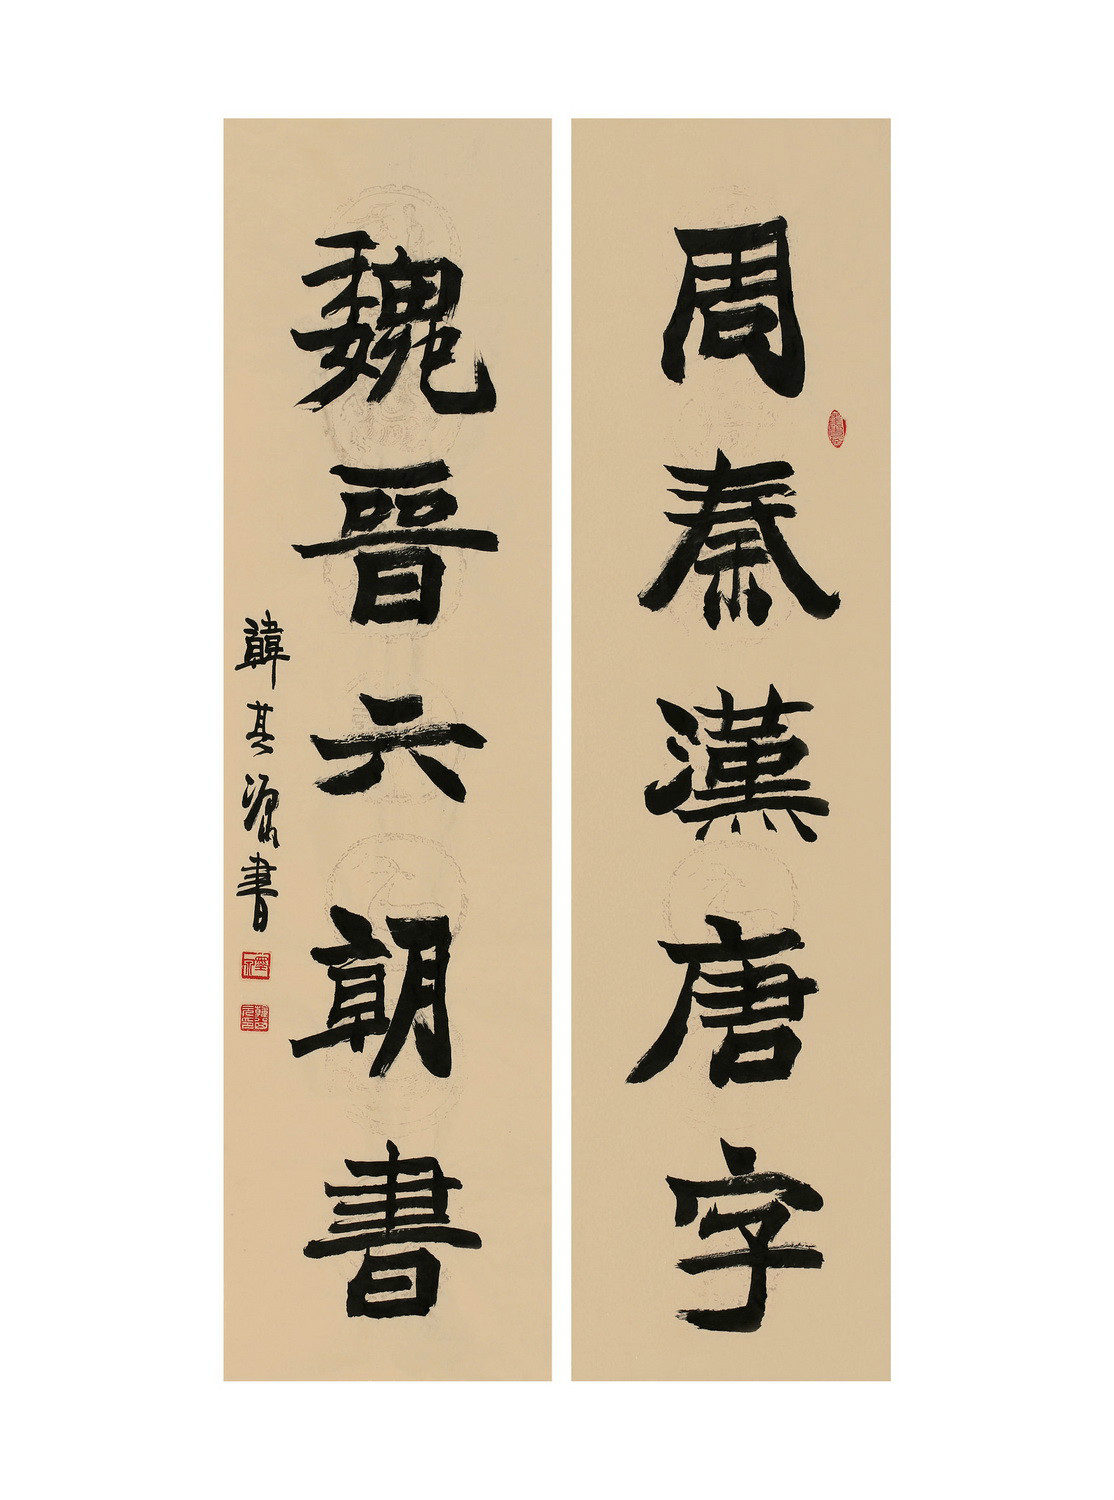 周秦漢唐字
魏晉六朝書
韓其源書